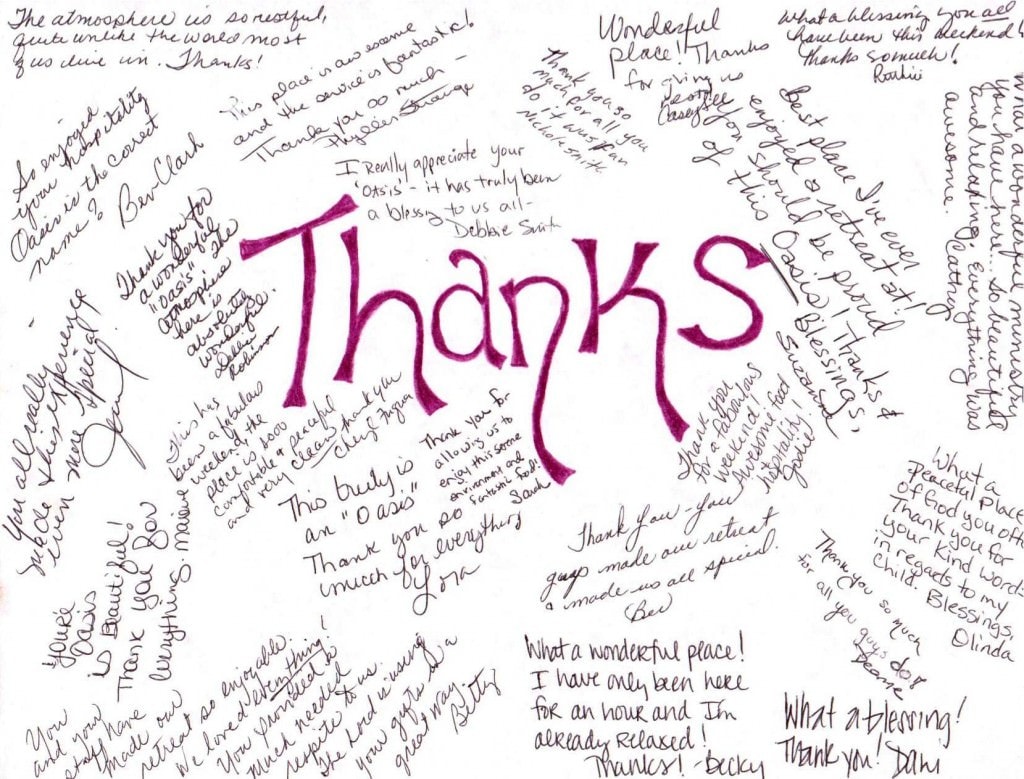 The atmosphere is so restful,
quite unlike the world most
of us live in. Thanks!
This place is awesome
and the service is fantastic!
Thank you so much –
Phyllis Strange
Wonderful
place! Thanks
for giving us
Casey
Thank you so
much for all you
do it was fan
Nichole Smith
What a blessing you all
have been this weekend!
Thanks so much!
So enjoyed
your hospitality
Oasis is the correct
name?
Bev Clark
I really appreciate your
'Oasis' - it has truly been
a blessing to us all -
Debbie Smith
Best place I've ever
enjoyed a retreat at!
You should be proud
of this Oasis! Thanks &
Blessings,
Suzanne
What a wonderful ministry
you have here... so beautiful
and relaxing. Everything was
awesome. Cathey
Thank you for
a wonderful
"Oasis" The
atmosphere
here is
absolutely
wonderful.
Debbie
Robinson
Thanks
You all really
made this experience
even more special!
This has
been a fabulous
weekend, the
place is sooo
comfortable & peaceful
and very clean thank you
Cheryl
Thank you for
allowing us to
enjoy this awesome
environment and
fantastic food!
Sarah
This truly is
an "Oasis"
Thank you so
much for everything
Lora
Thank you
for a fabulous
weekend
Awesome food
hospitality!
What a
peaceful place
of God you offer
Thank you for
your kind words
in regards to my
child. Blessings,
Olinda
Thank you - you
guys made our retreat
& made us all special.
Bev
Thank you so much
for all you guys do!
Deanne
You're
Oasis
is Beautiful!
Thank you for
everything. maxine
You
and your
staff have
made our
retreat so enjoyable.
We loved everything!
You provided a
much needed
respite to us.
The Lord is using
your gifts in a
great way.
Betty
What a wonderful place!
I have only been here
for an hour and I'm
already relaxed!
Thanks! -Becky
What a blessing!
Thank you! Dani